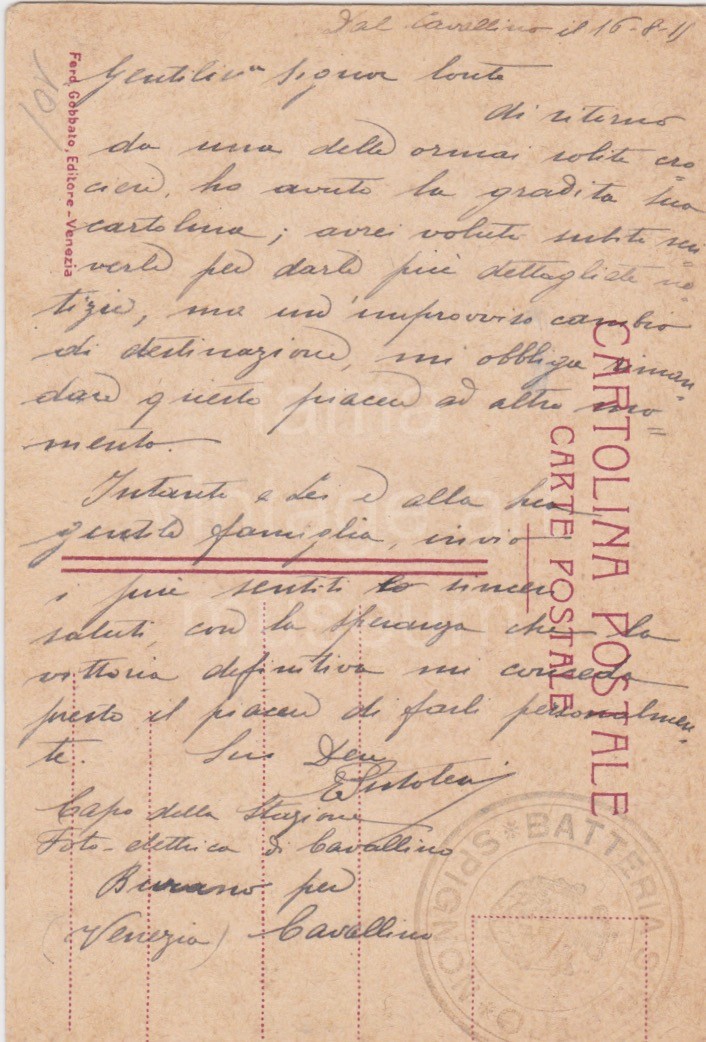 Dal Cavallino il 16-8-11
Gentilis.mo Signor Conte
di ritorno
da una delle ormai solite cro=
ciere, ho avuto la gradita sua
cartolina; avrei voluto subito scri=
verle per darle più dettagliate no=
tizie, ma un'improvviso cambio
di destinazione, mi obbliga riman=
dare questo piacere ad altro mo=
mento.
Intanto a Lei e alla sua
gentile famiglia, invio
i più sentiti e sinceri
saluti, con la speranza che la
vittoria definitiva mi conceda
presto il piacere di farli personalmen=
te. Suo Dev
Capo della Stazione
Foto-elettrica di Cavallino
Burano per
(Venezia) Cavallino
101
Ferd. Gobbato, Editore - Venezia
CARTOLINA POSTALE
CARTE POSTALE
BATTERIA
SPIGNON
fama
vintage art
museum